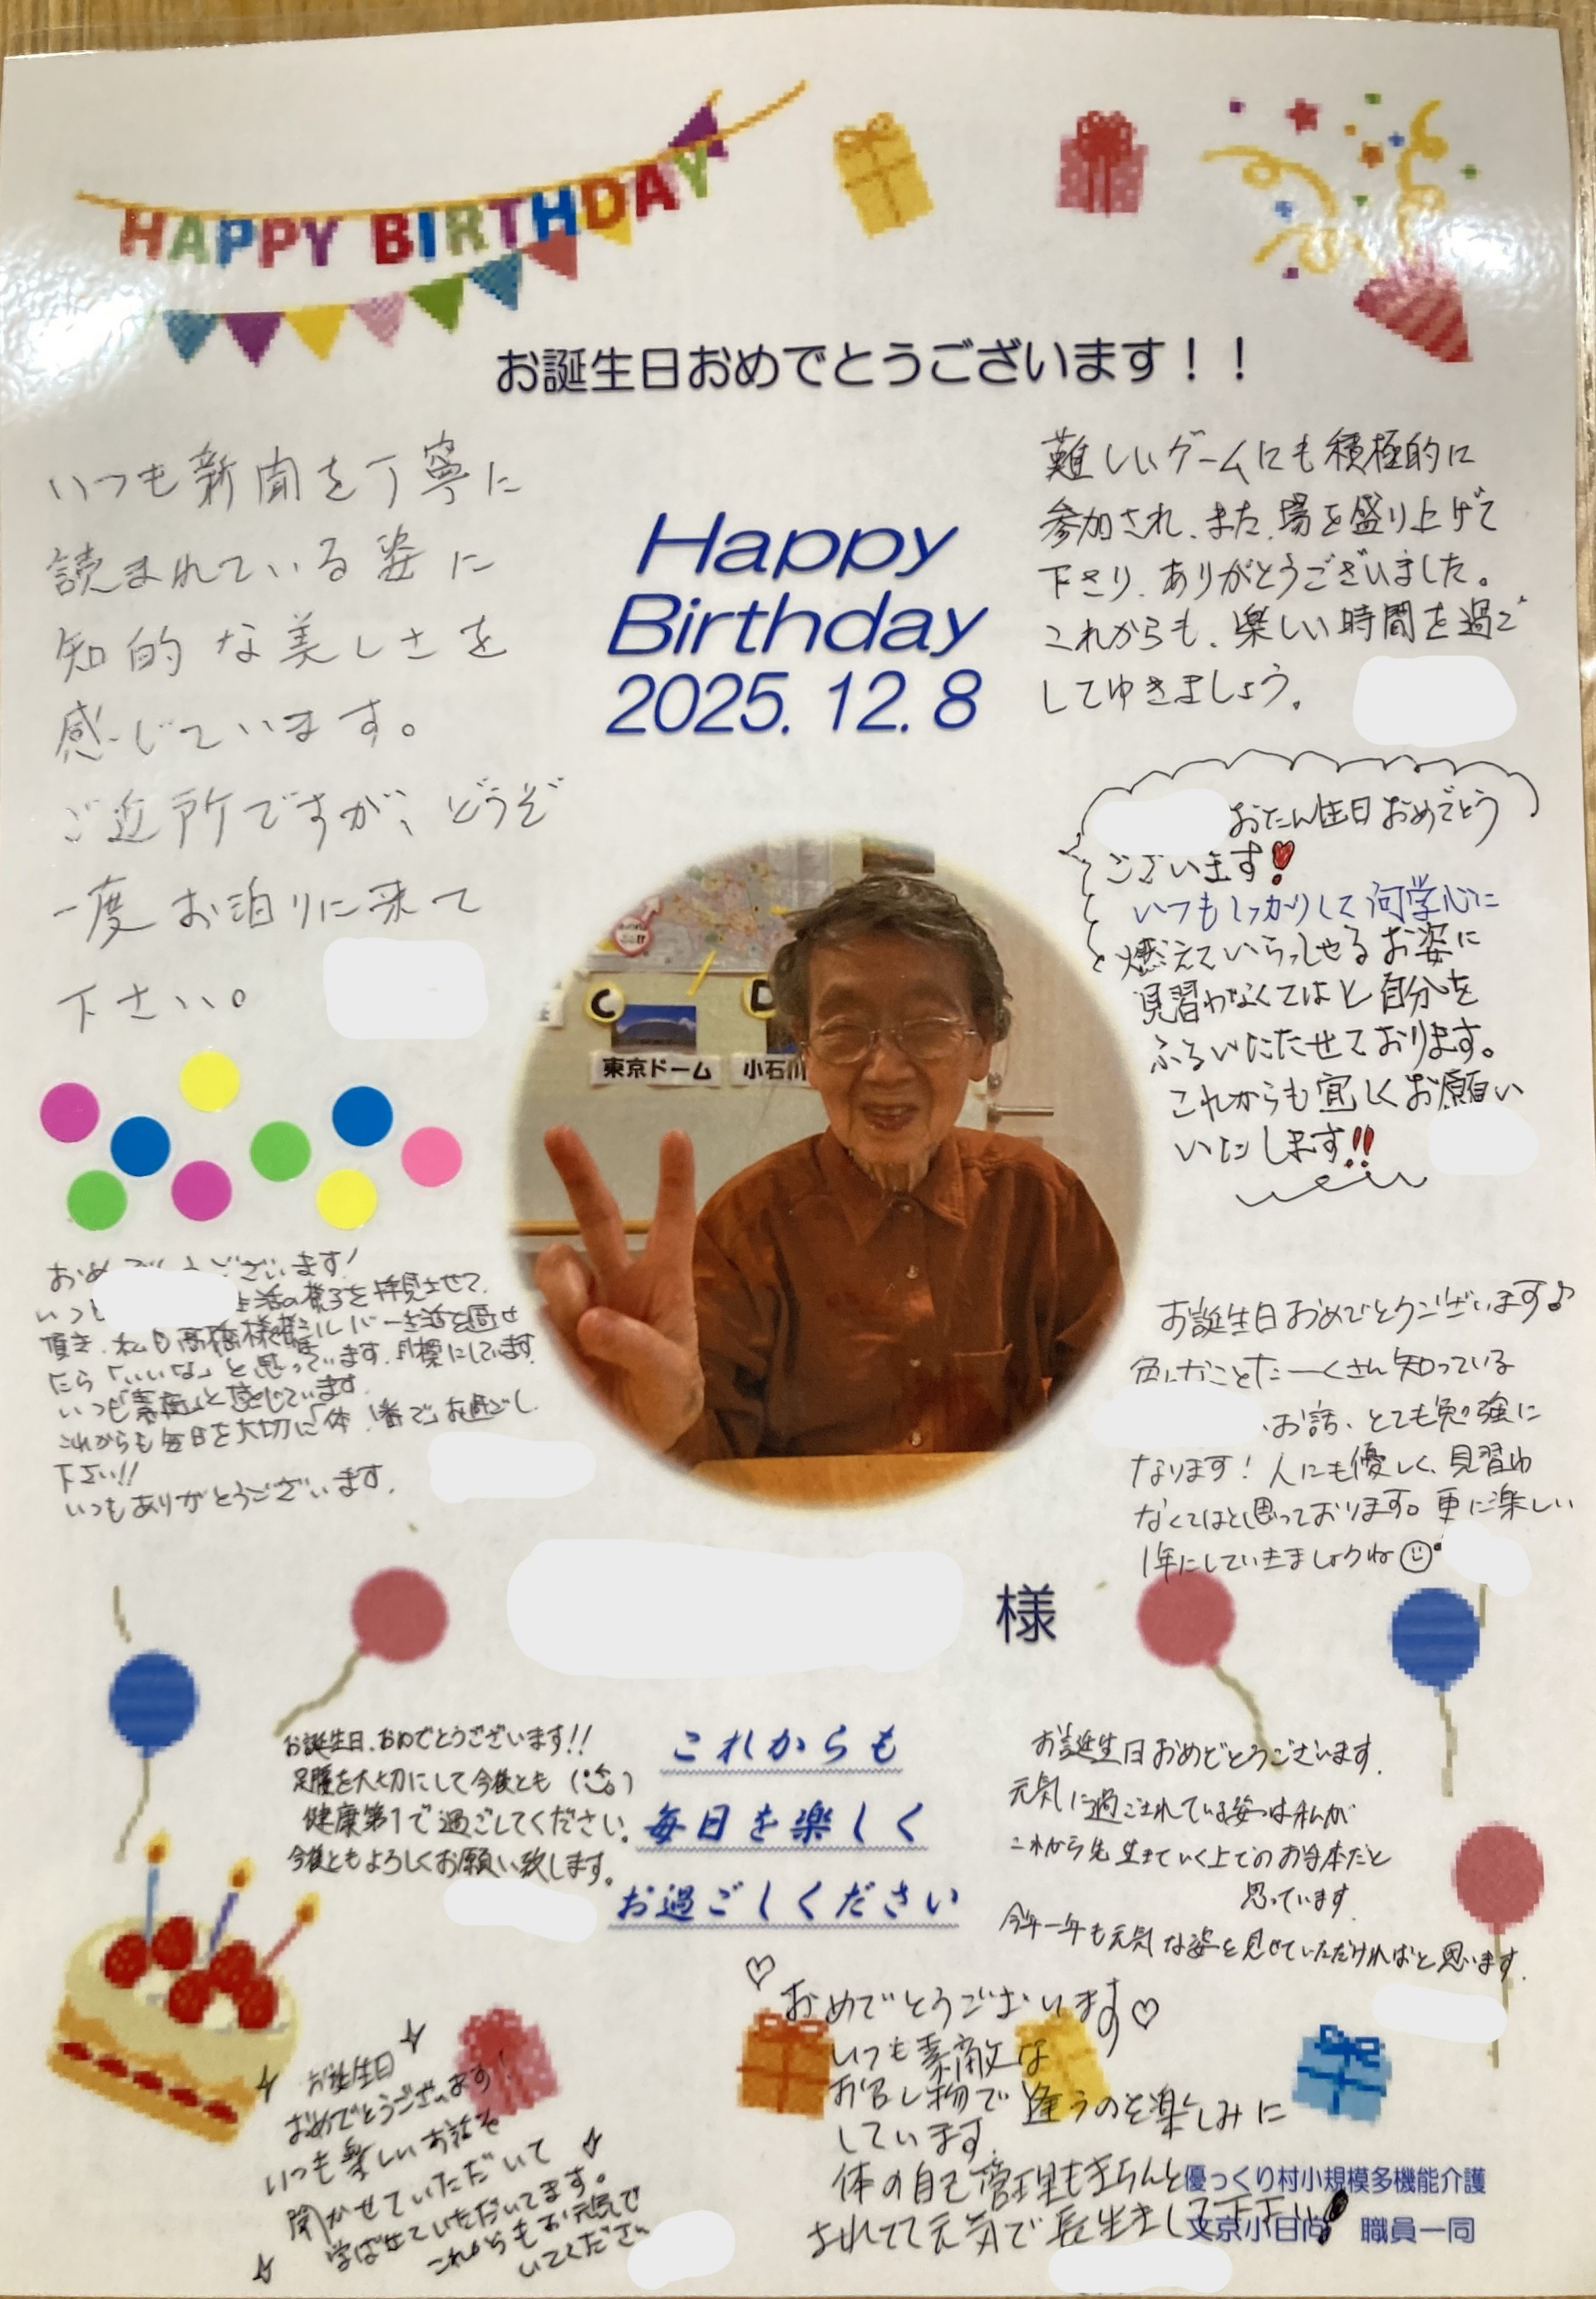 HAPPY BIRTHDAY
お誕生日おめでとうございます！！
いつも新聞を丁寧に
読まれている姿に
知的な美しさを
感じています。
ご近所ですが、どうぞ
一度お泊りに来て
下さい。
Happy
Birthday
2025. 12. 8
難しいゲームにも積極的に
参加され、また、場を盛り上げて
下さり、ありがとうございました。
これからも、楽しい時間を過ご
してゆきましょう。
おたん生日おめでとう
ございます
いつもしっかりして向学心に
燃えていらっしゃるお姿に
見習わなくてはと自分を
ふるいたたせております。
これからも宜しくお願い
いたします!!
C
D
東京ドーム
小石川
おめ ございます!
いつ 生活の様子を拝見させて
頂き、私も
たら「いいな」と思っています。目標にしています
いつも素敵と感じています
これからも毎日を大切に「体1番で」お過ごし
下さい!!
いつもありがとうございます。
お誕生日おめでとうございます♪
色んなことたーくさん知っている
お話、とても勉強に
なります! 人にも優しく、見習わ
なくてはと思っております。更に楽しい
1年にしていきましょうね
様
お誕生日、おめでとうございます!!
足腰を大切にして今後とも
健康第1で過ごしてください。
今後ともよろしくお願い致します。
これからも
毎日を楽しく
お過ごしください
お誕生日おめどとうございます。
元気に過ごされている姿は私が
これから先生きていく上でのお手本だと
思っています
今年一年も元気な姿を見せていただければと思います。
お誕生日
おめでとうございます!
いつも楽しいお話を
聞かせていただいて
学ばせていただいてます。
これからもお元気で
いてくださ
♡おめでとうございます♡
いつも素敵な
お召し物で逢うのを楽しみに
しています。
体の自己管理もきちんと
されてて元気で長生きして下さい
優っくり村小規模多機能介護
文京小日向 職員一同